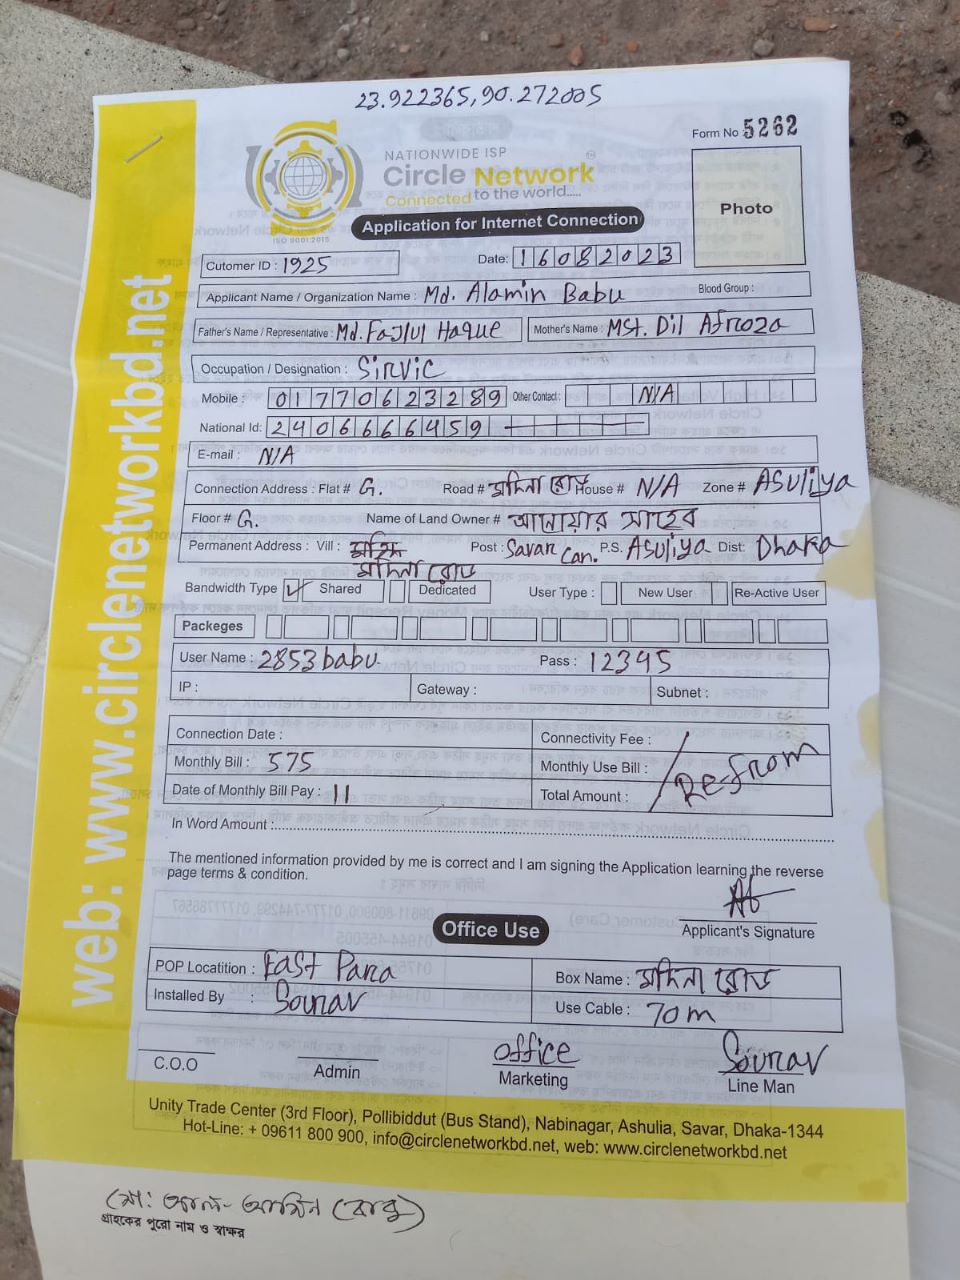 23.922365,90.272005
Form No 5262
NATIONWIDE ISP
Circle Network
Connected to the world.....
ISO 9001:2015
Application for Internet Connection
Photo
Cutomer ID : 1925 Date: 16082023
Applicant Name / Organization Name : Md. Alamin Babu Blood Group :
Father's Name / Representative : Md. Fajlul Haque Mother's Name : MSt. Dil Afroza
Occupation / Designation : Sirvic
Mobile : 01770623289 Other Contact : N/A
National Id: 2406666459
E-mail : N/A
Connection Address : Flat # G. Road # মদিনা রোড House # N/A Zone # ASuliya
Floor # G. Name of Land Owner # আনোয়ার সাহেব
Permanent Address : Vill : Post : Savar Can. P.S. ASuliya Dist: Dhaka
মদিনা রোড
Bandwidth Type Shared Dedicated User Type : New User Re-Active User
Packeges
User Name : 2853babu Pass : 12345
IP : Gateway : Subnet :
Connection Date : Connectivity Fee :
Monthly Bill : 575 Monthly Use Bill : Re-from
Date of Monthly Bill Pay : 11 Total Amount :
In Word Amount :
The mentioned information provided by me is correct and I am signing the Application learning the reverse
page terms & condition.
Applicant's Signature
Office Use
POP Locatition : East Para Box Name : মদিনা রোড
Installed By : Sourav Use Cable : 70m
office Sourav
C.O.O Admin Marketing Line Man
Unity Trade Center (3rd Floor), Pollibiddut (Bus Stand), Nabinagar, Ashulia, Savar, Dhaka-1344
Hot-Line: + 09611 800 900, info@circlenetworkbd.net, web: www.circlenetworkbd.net
web: www.circlenetworkbd.net
মো: আল-আমিন (বাবু)
গ্রাহকের পুরো নাম ও স্বাক্ষর